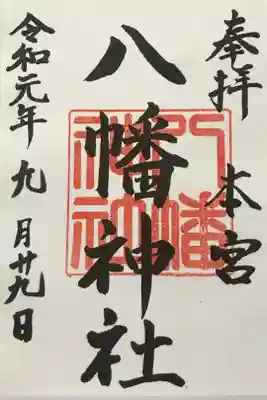 奉拝 本宮
八幡神社
八幡神社
令和元年九月廿九日